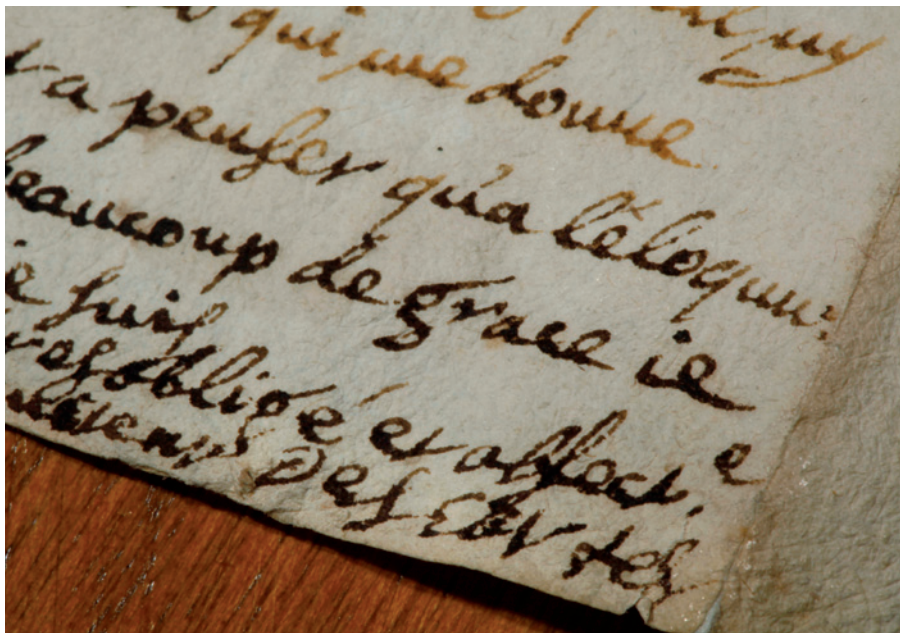 qui me donne
a penser qu'a l'éloquen:
beaucoup de grace ie
ie suis
obligé et affect. e
Descartes